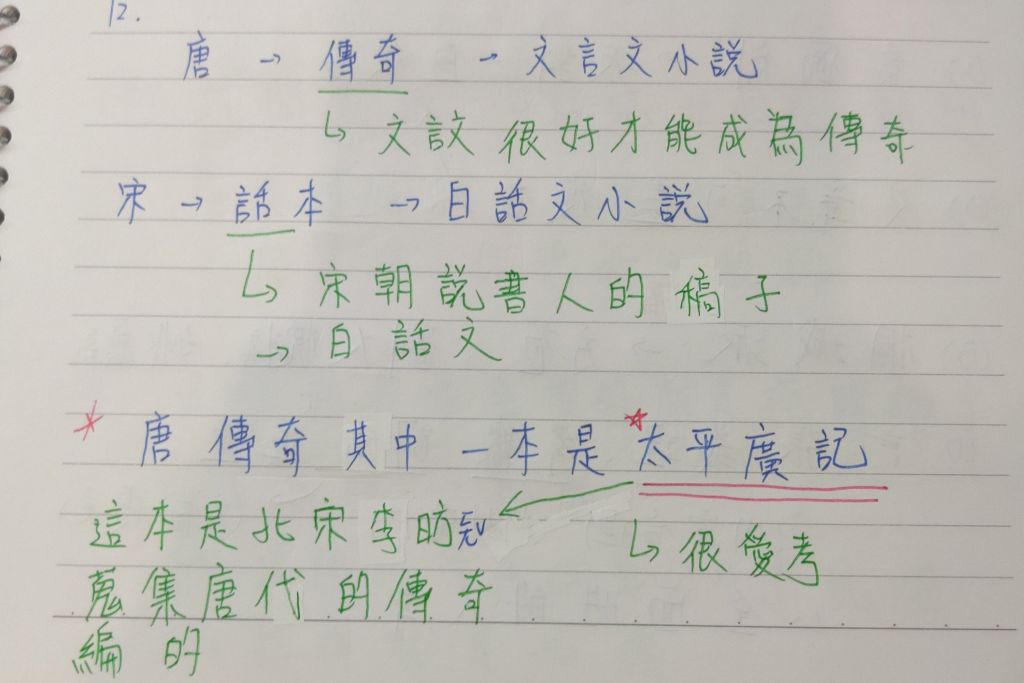 12.
唐 → 傳奇 → 文言文小說
↳ 文設 很好才能成為傳奇
宋 → 話本 → 白話文小說
↳ 宋朝說書人的稿子
→ 白話文
* 唐傳奇其中一本是*太平廣記
這本是北宋李昉
↳ 很愛考
蒐集唐代的傳奇
編的